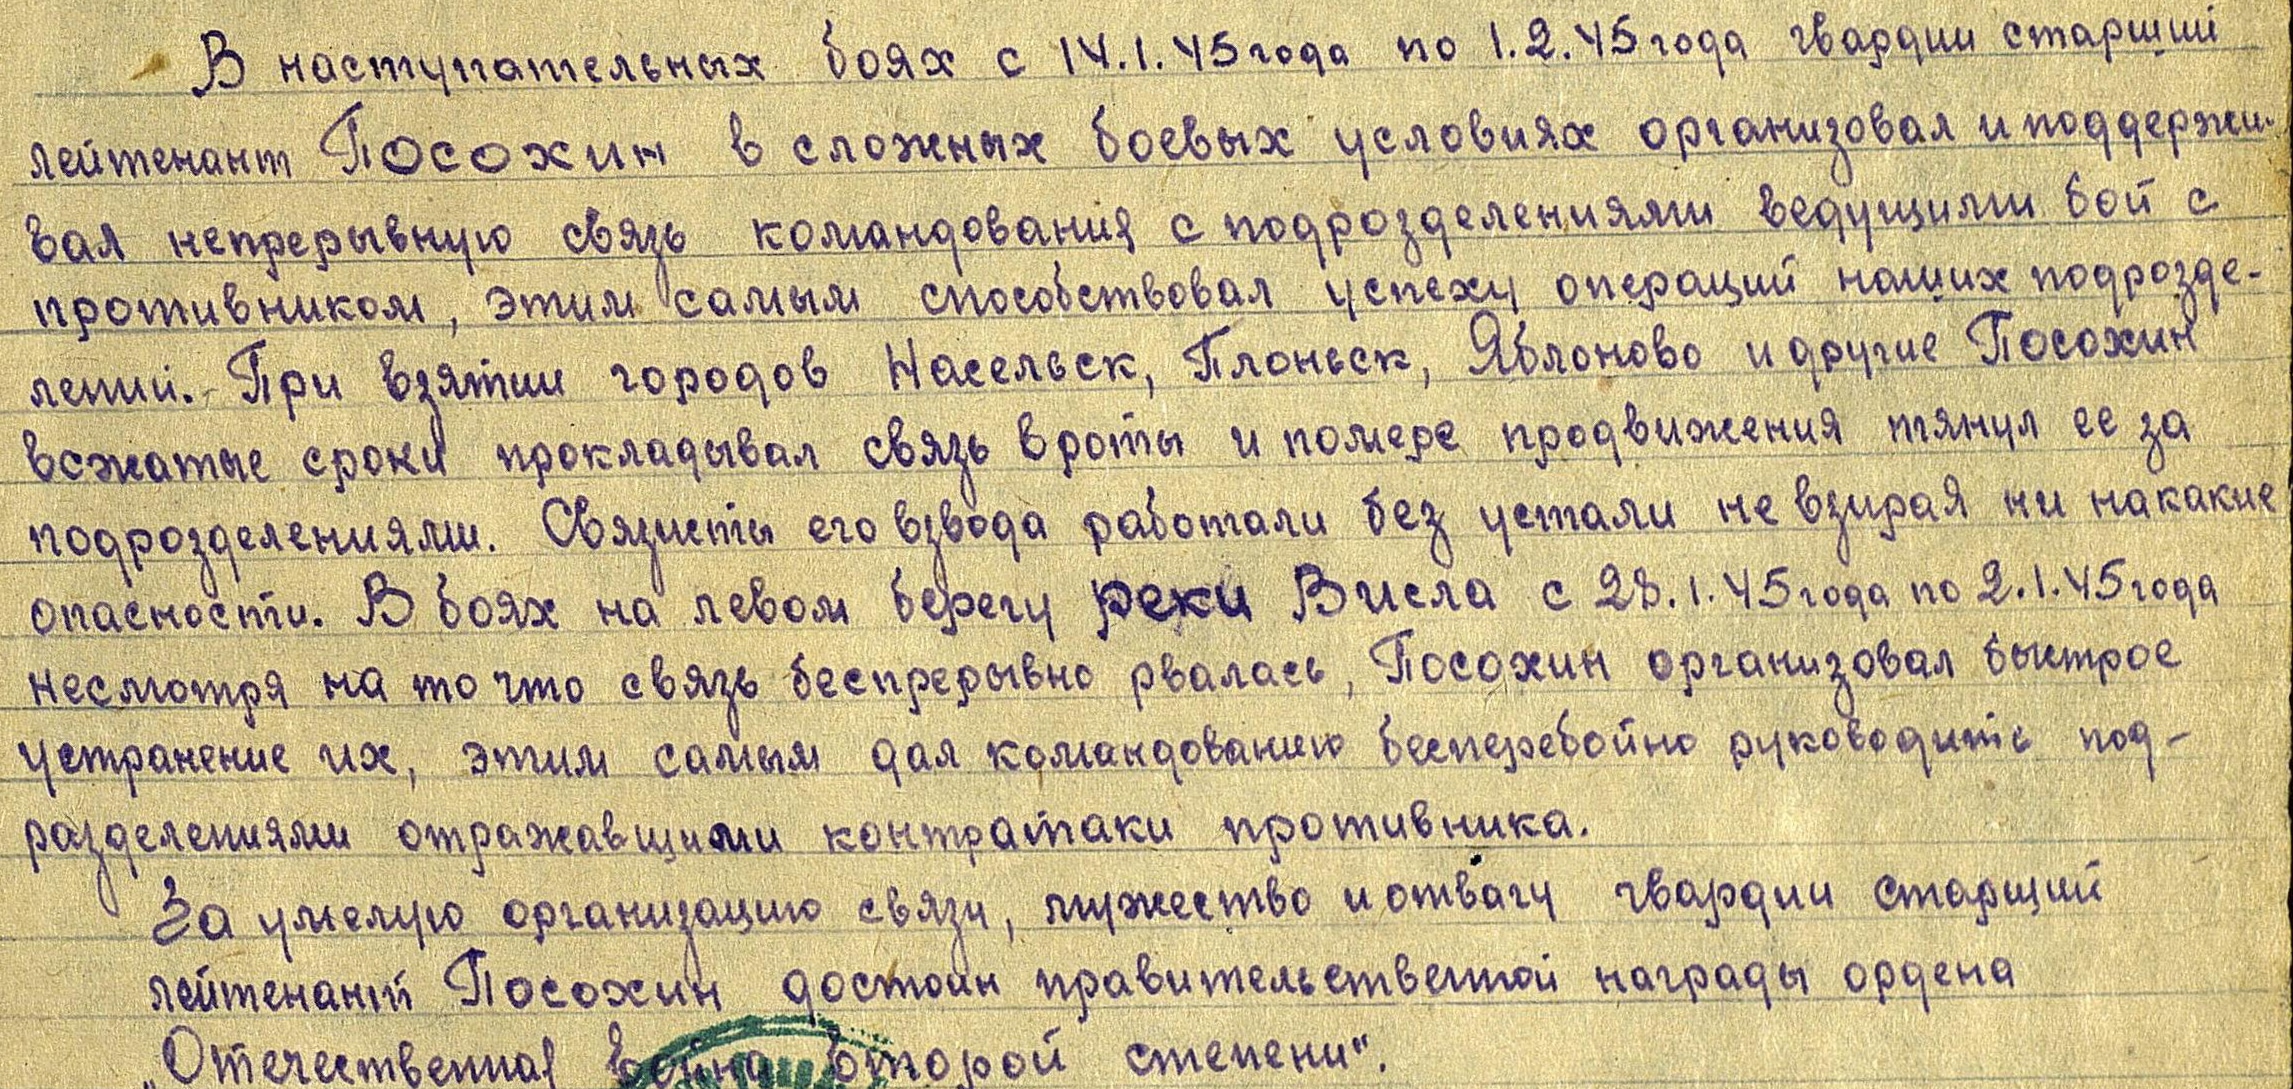 В наступательных боях с 14.1.45 года по 1.2.45 года гвардии старший
лейтенант Посохин в сложных боевых условиях организовал и поддержи-
вал непрерывную связь командования с подрозделениями ведущими бой с
противником, этим самым способствовал успеху операций наших подрозде-
лений. При взятии городов Насельск, Плоньск, Яблоново и другие Посохин
всжатые сроки прокладывал связь в роты и по мере продвижения тянул ее за
подрозделениями. Связисты его взвода работали без устали не взирая ни на какие
опасности. В боях на левом берегу реки Висла с 28.1.45 года по 2.1.45 года
несмотря на то что связь беспрерывно рвалась, Посохин организовал быстрое
устранение их, этим самым дал командованию бесперебойно руководить под-
разделениями отражавшими контратаки противника.
За умелую организацию связи, мужество и отвагу гвардии старший
лейтенант Посохин достоин правительственной награды ордена
„Отечественная война второй степени".